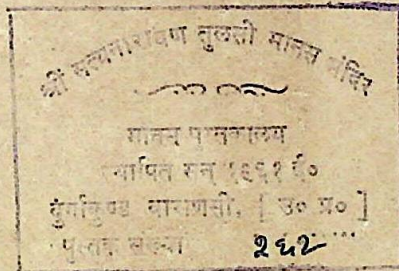 श्री सत्यनारायण तुलसी मानस मंदिर
मानस पुस्तकालय
स्थापित सन् १९६१ ई०
दुर्गाकुण्ड वाराणसी, [ उ० प्र० ]
पुस्तक संख्या